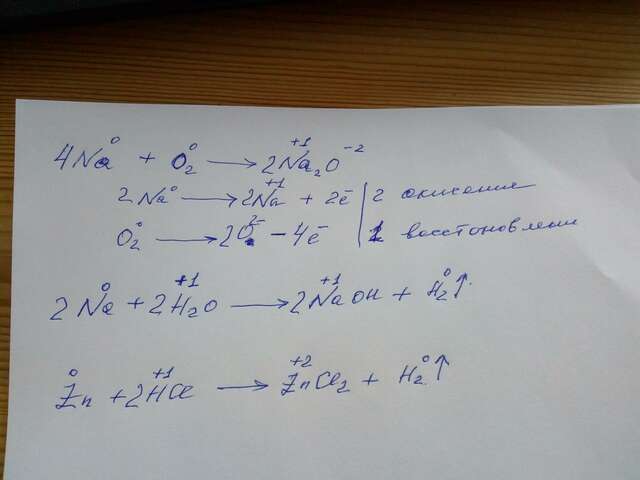 4Na⁰ + O₂⁰ → 2Na₂⁺¹O⁻²
2Na⁰ → 2Na⁺¹ + 2ē | 2 окисение
O₂⁰ → 2O²⁻ - 4ē | 1 восстоновлени
2Na⁰ + 2H₂⁺¹O → 2Na⁺¹OH + H₂⁰↑
Zn⁰ + 2H⁺¹Cl → Zn⁺²Cl₂ + H₂⁰↑